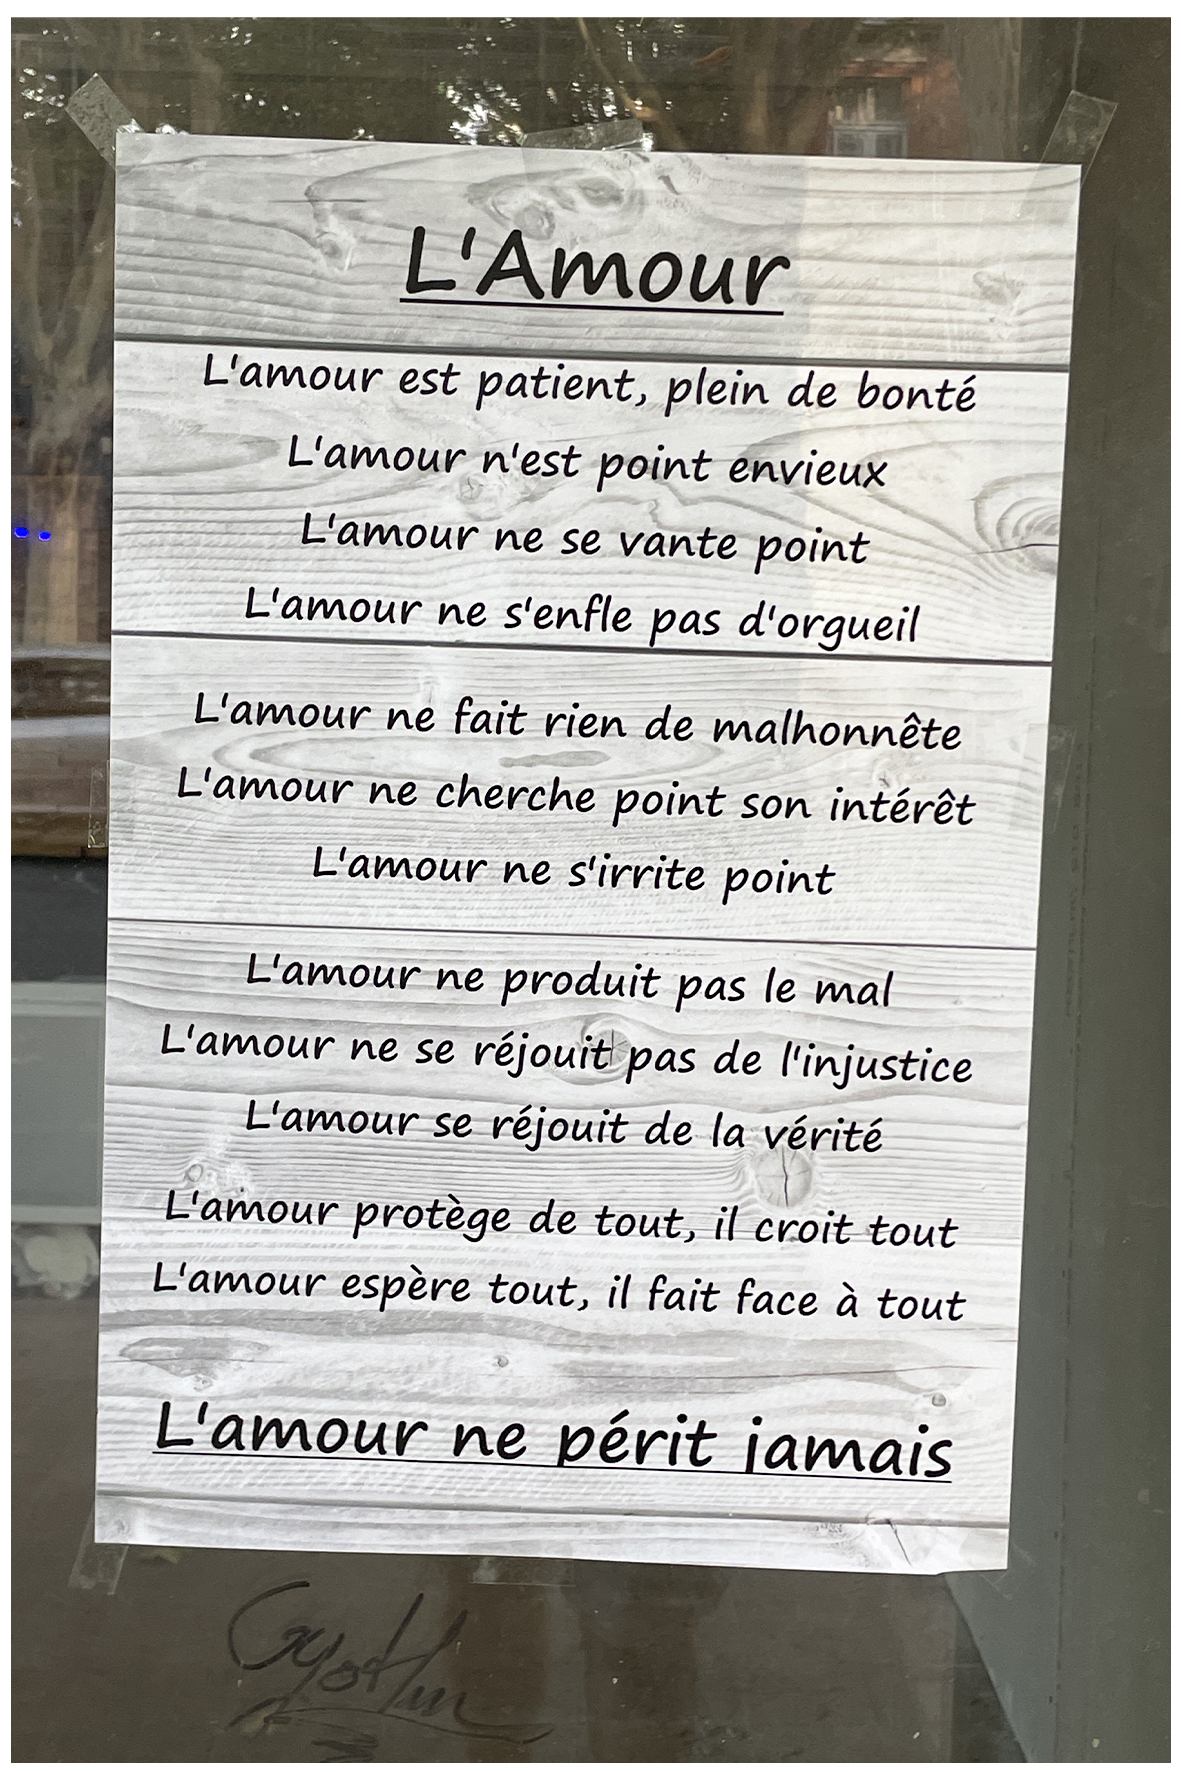 L'Amour
L'amour est patient, plein de bonté
L'amour n'est point envieux
L'amour ne se vante point
L'amour ne s'enfle pas d'orgueil
L'amour ne fait rien de malhonnête
L'amour ne cherche point son intérêt
L'amour ne s'irrite point
L'amour ne produit pas le mal
L'amour ne se réjouit pas de l'injustice
L'amour se réjouit de la vérité
L'amour protège de tout, il croit tout
L'amour espère tout, il fait face à tout
L'amour ne périt jamais